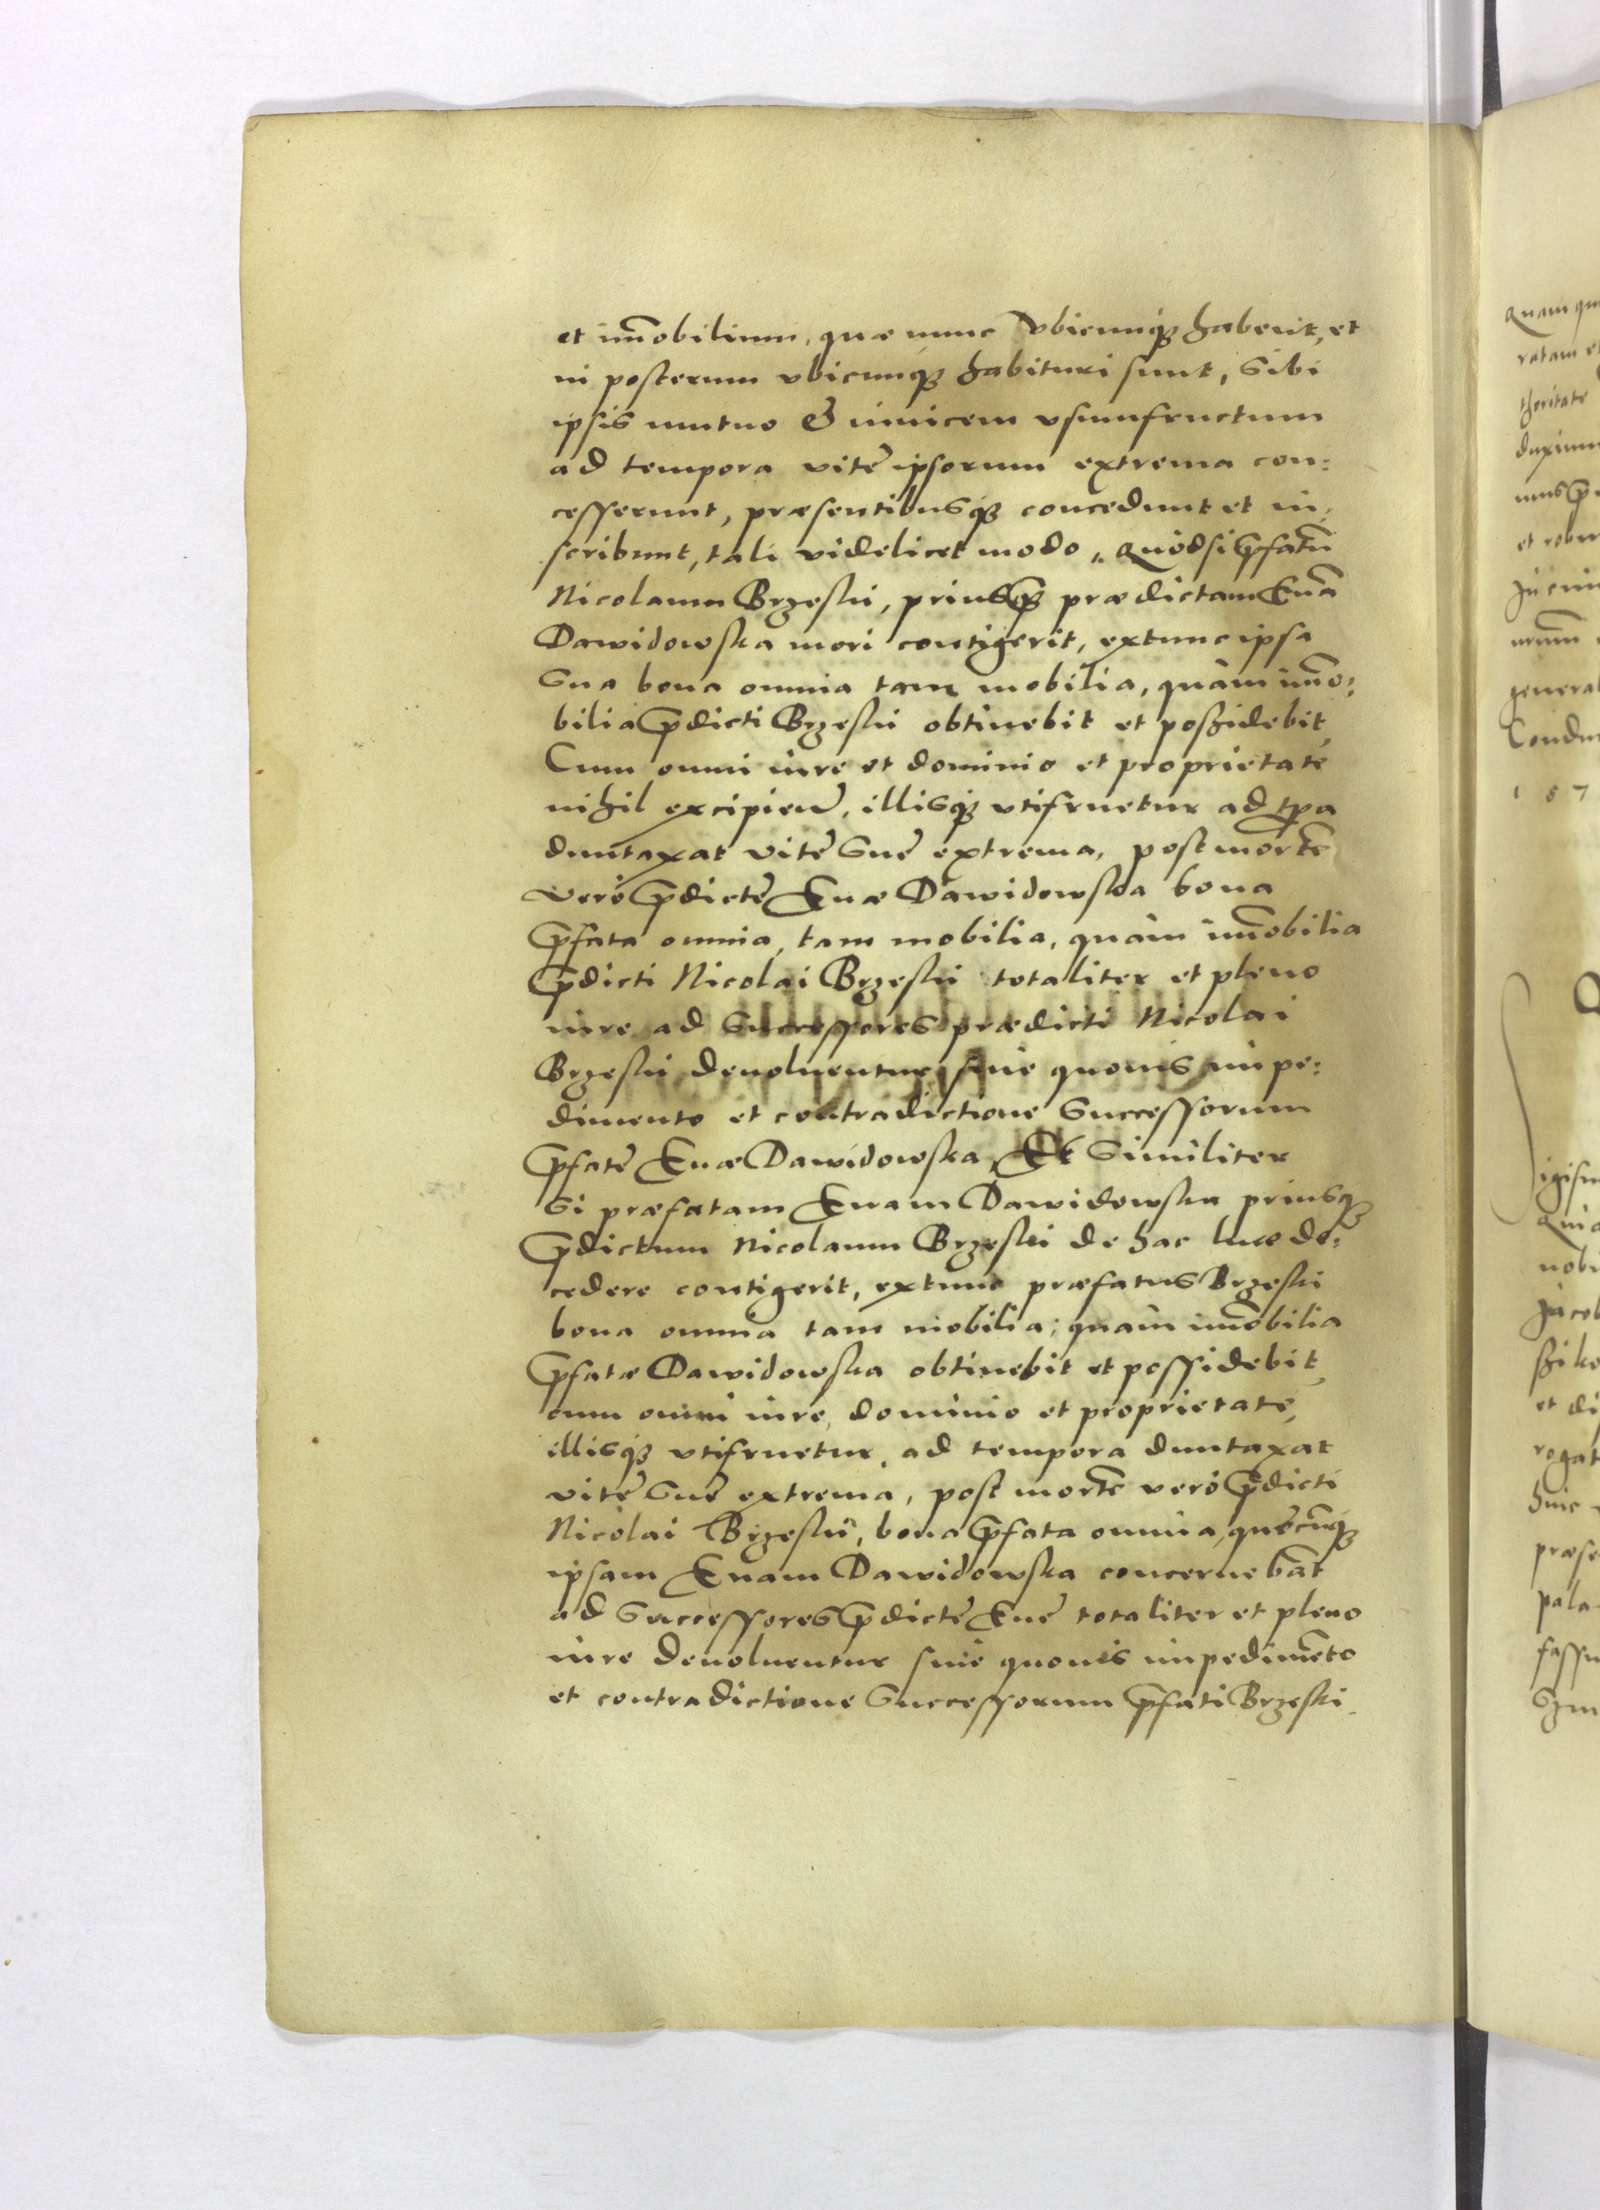 et im̅obilium, quæ nunc vbicunq3 habent, et
in posterum vbicunq3 habituri sunt, sibi
ipsis mutuo & inuicem vsumfructum
ad tempora vitę ipsorum extrema con:
cesserunt, præsentibusq3 concedunt et in:
scribunt, tali videlicet modo. Quòd si p̄fatū
Nicolaum Brzeski, priusq3 prædictam Euā
Dawidowska mori contigerit, extunc ipsa
Eua bona omnia tam mobilia, quàm im̅o:
bilia p̄dicti Brzeski obtinebit et poßidebit,
Cum omni iure et dominio et proprietate
nihil excipien̄, illisq3 vtifruetur ad tp̄a
duntaxat vitę suę extrema, post mortē
verò p̄dictę Euæ Dawidowska bona
p̄fata omnia, tam mobilia, quàm im̅obilia
p̄dicti Nicolai Brzeski totaliter et pleno
iure ad successores prædicti Nicolai
Brzeski deuoluentur, sine quouis impe:
dimento et contradictione successorum
p̄fatę Euæ Dawidowska, Et similiter
si præfatam Euam Dawidowska priusq3
p̄dictum Nicolaum Brzeski de hac luce de:
cedere contigerit, extunc præfatus Brzeski
bona omnia tam mobilia, quàm im̅obilia
p̄fatæ Dawidowska obtinebit et possidebit,
cum omni iure, dominio et proprietate,
illisq3 vtifruetur, ad tempora duntaxat
vitę suę extrema, post mortē verò p̄dicti
Nicolai Brzeski, bona p̄fata omnia, quęcūq3
ipsam Euam Dawidowska concernebāt
ad successores p̄dictę Euę totaliter et pleno
iure deuoluentur sine quouis impedimēto
et contradictione successorum p̄fati Brzeski.